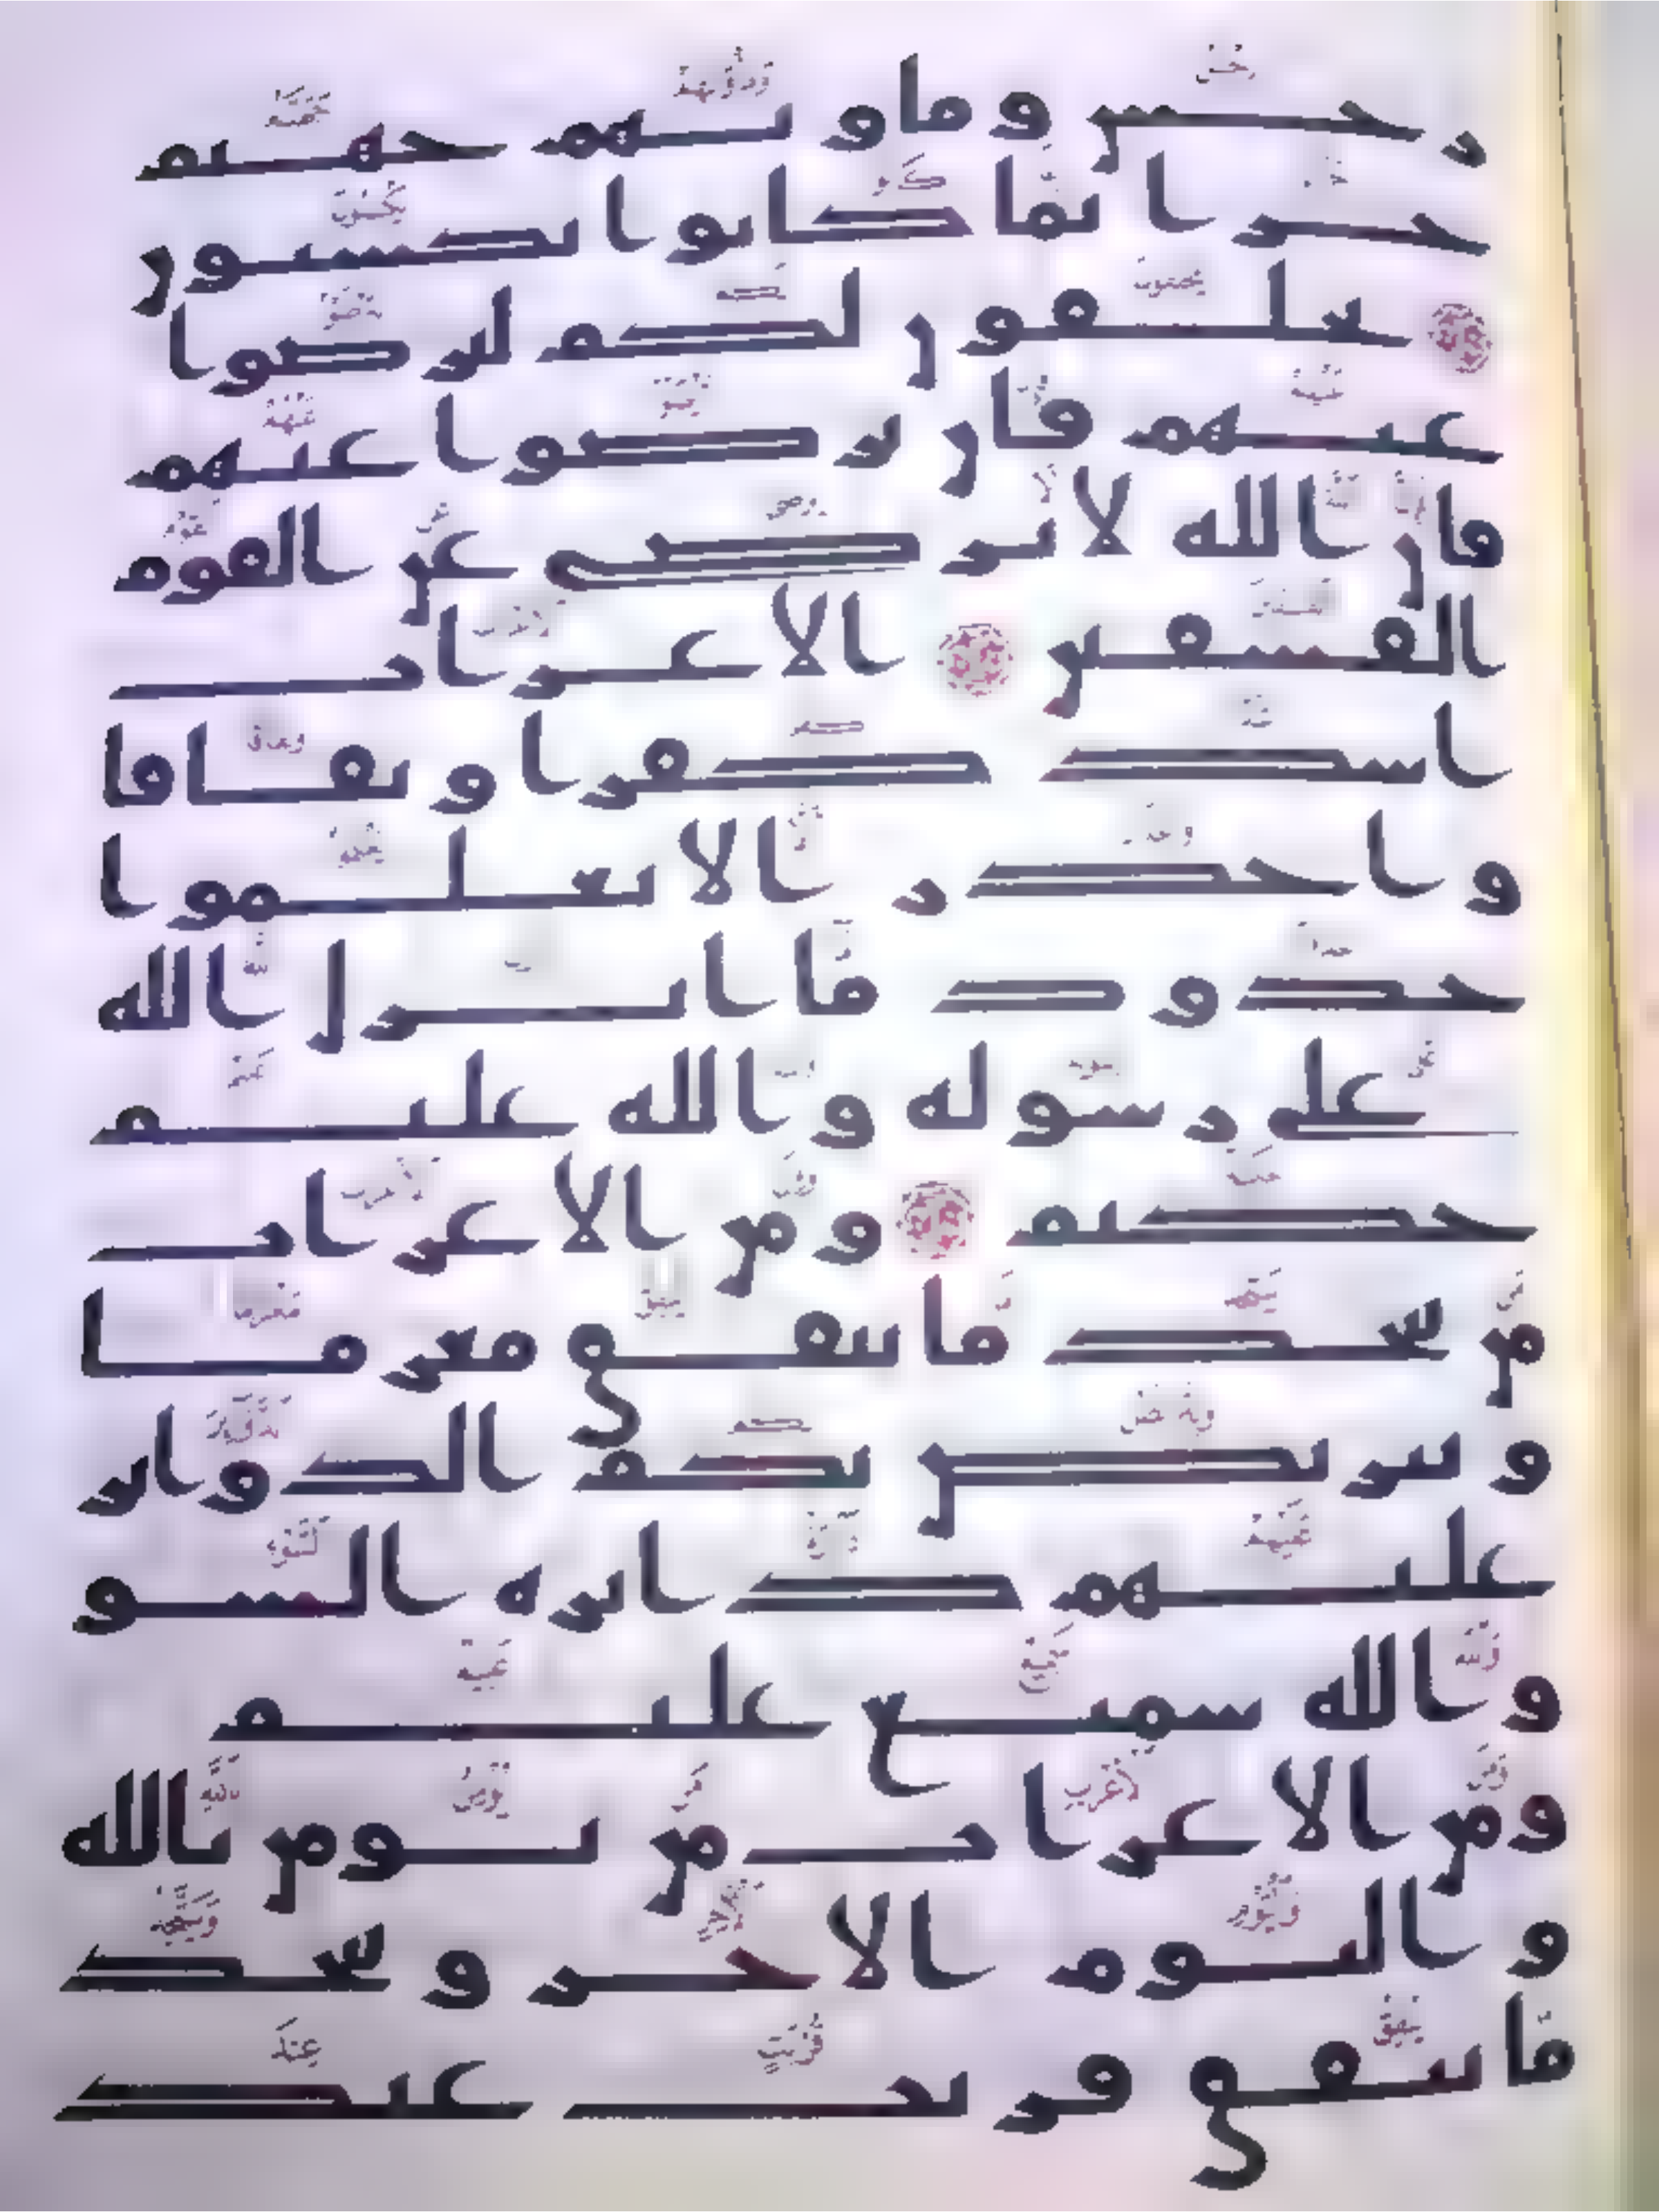 رجس وماويهم جهنم
جزا بما كانوا يكسبون
يحلفون لكم لترضوا
عنهم فان ترضوا عنهم
فان الله لا يرضى عن القوم
الفسقين الاعراب
اشد كفرا ونفاقا
واجدر الا يعلموا
حدود ما انزل الله
على رسوله والله عليم
حكيم ومن الاعراب
من يتخذ ما ينفق مغرما
ويتربص بكم الدواير
عليهم دايرة السو
والله سميع عليم
ومن الاعراب من يومن بالله
واليوم الاخر ويتخذ
ما ينفق قربت عند